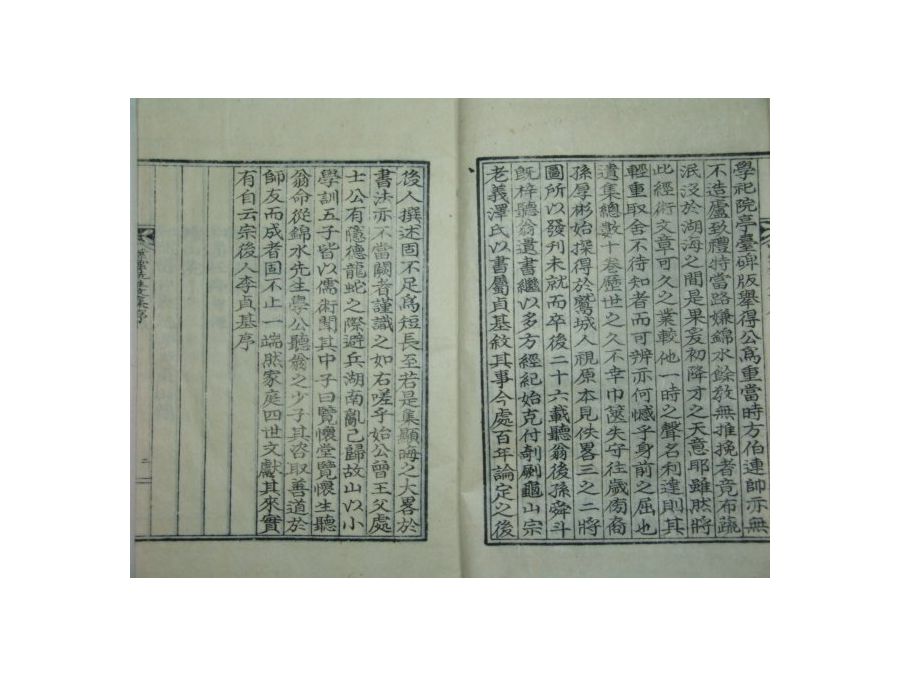 學祀院亭臺碑版舉得公爲重當時方伯連帥亦無
不造盧致禮特當路嫌錦水餘敎無推挽者竟布蔬
泯沒於湖海之間是果爰初降才之天意耶雖然將
此經術文章可久之業較他一時之聲名利達則其
輕重取舍不待知者而可辨亦何憾乎身前之屈也
遺集總數十卷歷世之久不幸巾篋失守往歲傍裔
孫厚彬始探得於鷲城人視原本見佚畧三之二將
圖所以發刊未就而卒後二十六載聽翁後孫舜斗
旣梓聽翁遺書繼以多方經紀始克付剞劂龜山宗
老義澤氏以書屬貞基敘其事今處百年論定之後
後人撰述固不足爲短長至若是集顯晦之大畧於
書法亦不當闕者謹識之如右嗟乎始公曾王父處
士公有隱德龍蛇之際避兵湖南亂已歸故山以小
學訓五子皆以儒術聞其中子曰覽懷堂覽懷生聽
翁命從錦水先生學公聽翁之少子其咨取善道於
師友而成者固不止一端然家庭四世文獻其來實
有自云宗後人李貞基序